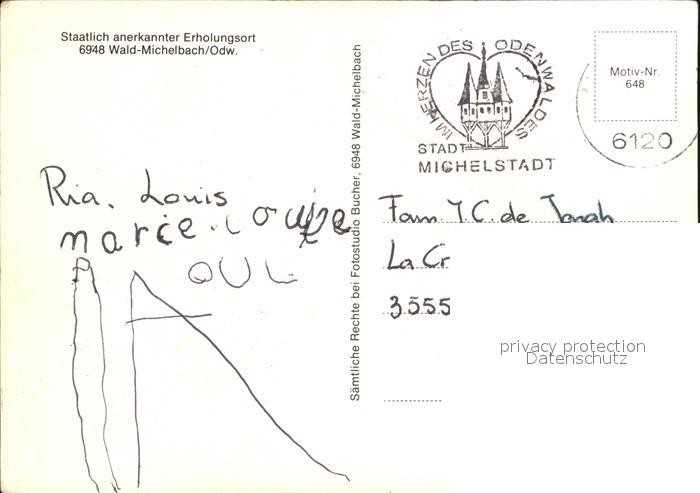 Staatlich anerkannter Erholungsort
6948 Wald-Michelbach/Odw.
Ria. Louis
marie-Louise
Sämtliche Rechte bei Fotostudio Bucher, 6948 Wald-Michelbach
IM HERZEN DES ODENWALDES
STADT
MICHELSTADT
Motiv-Nr.
648
6120
Fam. J.C. de
La Cr
3555
privacy protection
Datenschutz